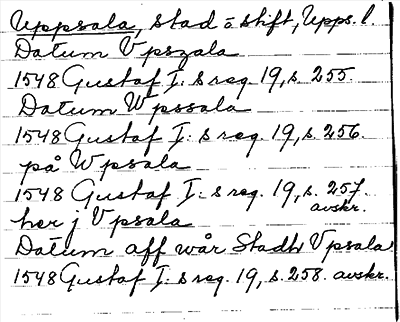 Uppsala, stad o stift, Upps. l.
Datum Vpszala
1548 Gustaf I:s reg. 19, s. 255.
Datum Wpssala
1548 Gustaf I:s reg. 19, s. 256.
på Wpsala
1548 Gustaf I:s reg. 19, s. 257. avskr.
her j Vpsala
Datum aff wår Stadh Vpsala
1548 Gustaf I:s reg. 19, s. 258. avskr.